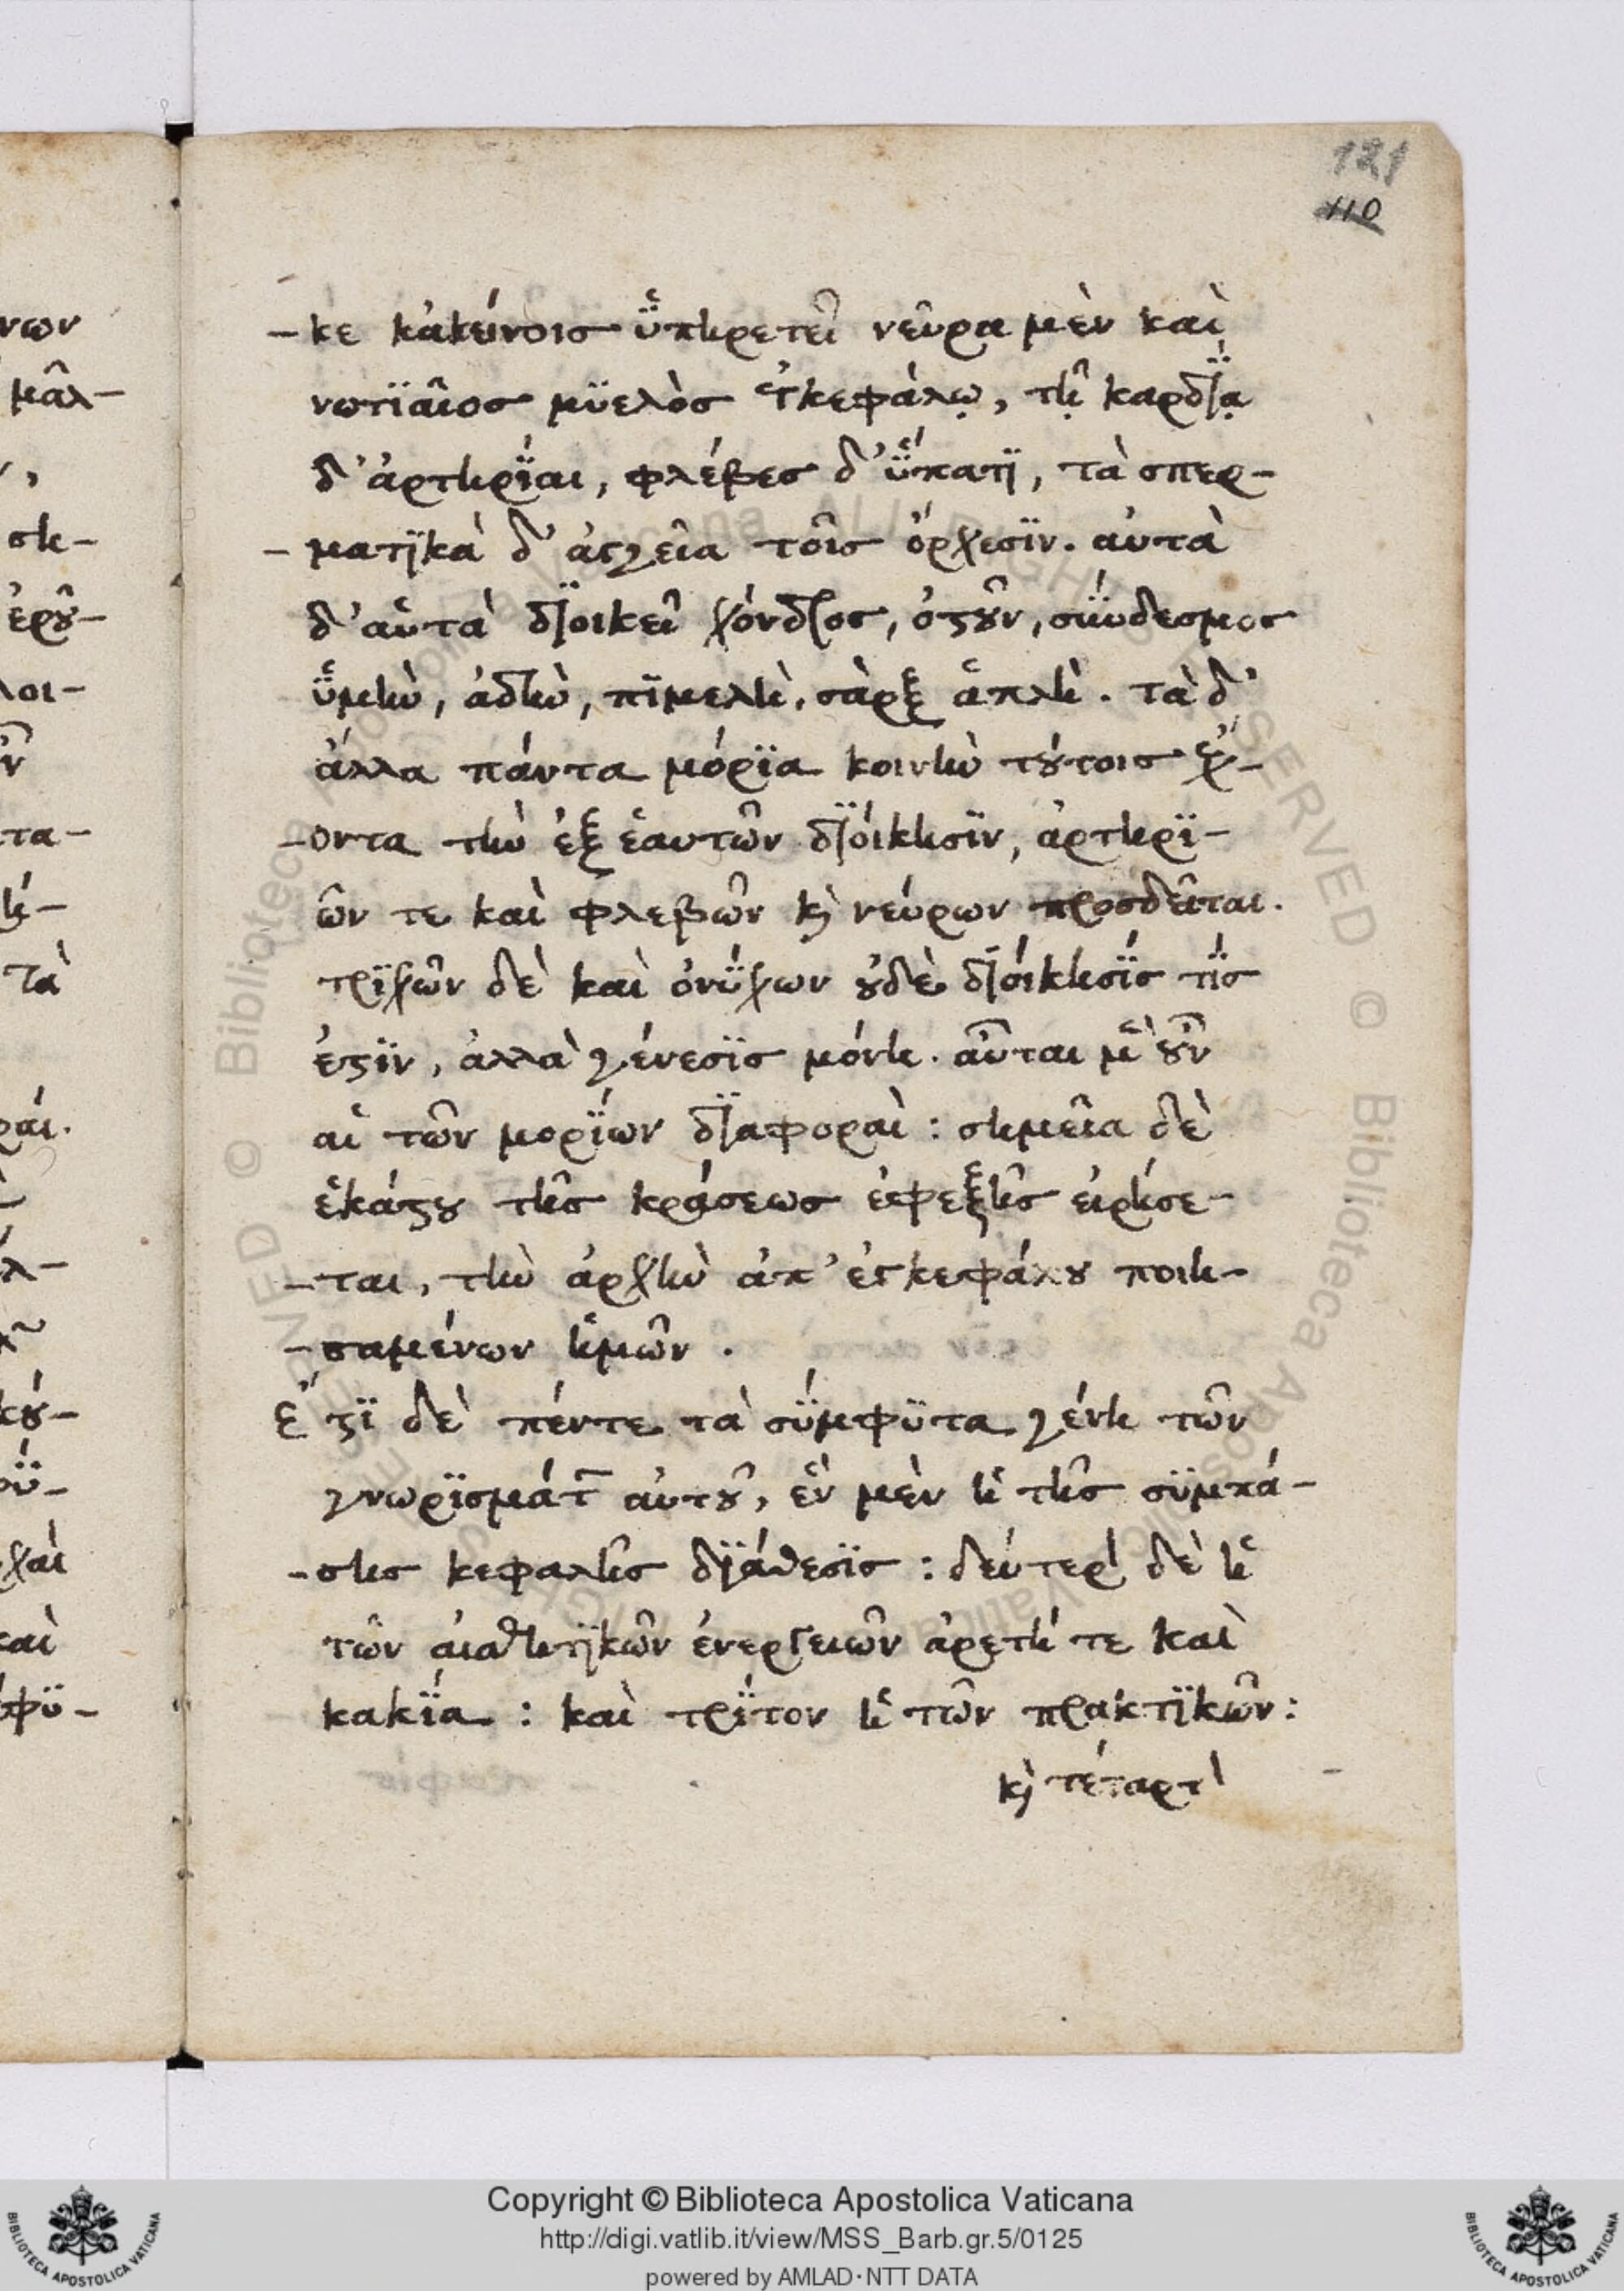 121
110
-κε κἀκείνοις ὑπηρετεῖ νεῦρα μὲν καὶ
νωτϊαῖος μϋελὸς ἐγκεφάλῳ, τῇ καρδΐᾳ
δ' ἀρτηρΐαι, φλέβες δ' ἥπατϊ, τὰ σπερ-
-ματϊκὰ δ' ἀγγεῖα τοῖς ὄρχεσϊν. αὐτὰ
δ' αὑτὰ δϊοικεῖ χόνδρος, ὀστοῦν, σύνδεσμος
ὑμὴν, ἀδὴν, πϊμελὴ, σὰρξ ἁπλὴ. τὰ δ'
ἄλλα πάντα μόρϊα κοινὴν τούτοις ἔχ-
-οντα τὴν ἐξ ἑαυτῶν δϊοίκησϊν, ἀρτηρϊ-
ῶν τε καὶ φλεβῶν κ̀ νεύρων προσδεῖται.
τρϊχῶν δὲ καὶ ὀνύχων οὐδὲ δϊοίκησΐς τΐς
ἐστϊν, ἀλλὰ γένεσϊς μόνη. αὗται μὲ̀ οὖν
αἱ τῶν μορΐων δϊαφοραὶ : σημεῖα δὲ
ἑκάστου τῆς κράσεως ἐφεξῆς εἰρήσε-
-ται, τὴν ἀρχὴν ἀπ' ἐγκεφάλου ποιη-
-σαμένων ἡμῶν.
Ἔ στϊ δὲ πέντε τὰ σύμφϋτα γένη τῶν
γνωρϊσμάτ̄ αὐτοῦ, ἓν μὲν ἡ τῆς σϋμπά-
-σης κεφαλῆς δϊάθεσϊς : δεύτερ̀ δὲ ἡ
τῶν αἰσθητϊκῶν ἐνεργειῶν ἀρετή τε καὶ
κακΐα : καὶ τρΐτον ἡ τῶν πρακτϊκῶν :
κ̀ τέταρτ̀
νων
μᾶλ-
ση-
ἐροῦ-
λοι-
τα-
τὰ
καὶ
φϋ-
Copyright © Biblioteca Apostolica Vaticana
http://digi.vatlib.it/view/MSS_Barb.gr.5/0125
powered by AMLAD·NTT DATA
BIBLIOTECA APOSTOLICA VATICANA
BIBLIOTECA APOSTOLICA VATICANA